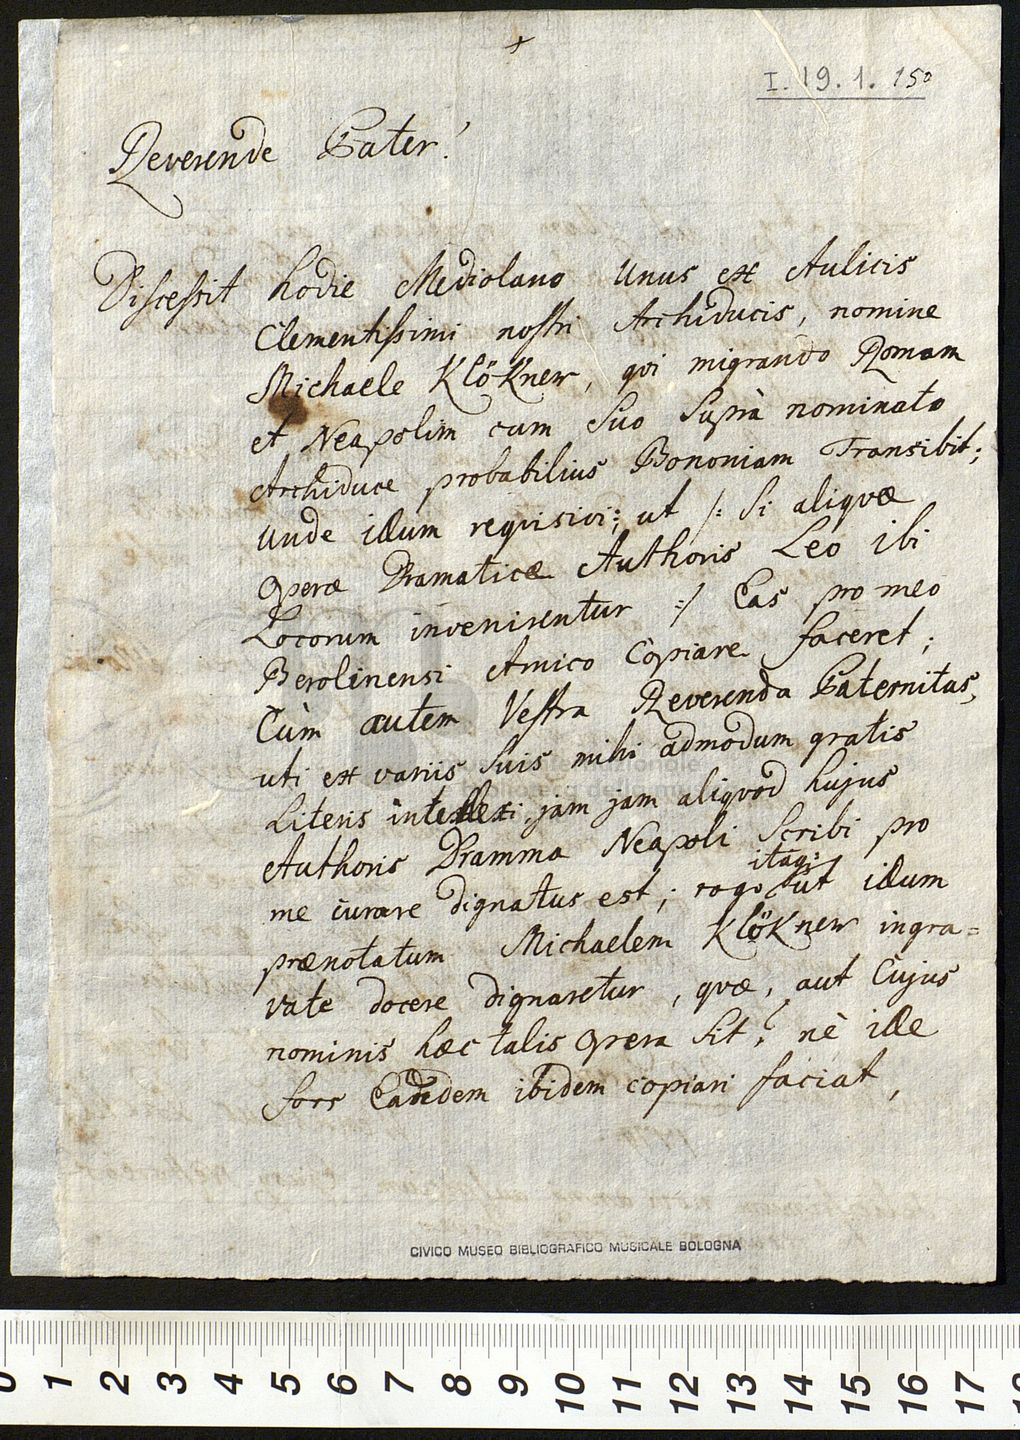 +
I. 19. 1. 15a
Reverende Pater!
Discessit hodie Mediolano Unus ex Aulicis
Clementissimi nostri Archiducis, nomine
Michaele KlöKner, qui migrando Romam
et Neapolim cum Suo Suprà nominato
Archiduce probabilius Bononiam Transibit;
Unde illum requisivi; ut /: Si aliquæ
Operæ Dramaticæ Authoris Leo ibi
Locorum invenirentur :/ Eas pro meo
Berolinensi Amico Copiare faceret;
Cùm autem Vestra Reverenda Paternitas,
uti ex variis Suis mihi admodum gratis
Literis intellexi, jam jam aliquod hujus
Authoris Dramma Neapoli Scribi pro
me curare dignatus est; rogo itaq: ut illum
prænotatum Michaelem KlöKner ingra=
vate docere dignaretur, quæ, aut Cujus
nominis hæc talis Opera Sit, nè ille
fors Eandem ibidem copiari faciat,
CIVICO MUSEO BIBLIOGRAFICO MUSICALE BOLOGNA
0 1 2 3 4 5 6 7 8 9 10 11 12 13 14 15 16 17